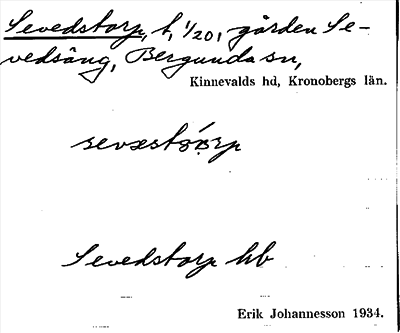 Sevedstorp, t, 1/20, gården Se-
vedsäng, Bergunda sn,
Kinnevalds hd, Kronobergs län.
Sevedstorp hb
Erik Johannesson 1934.